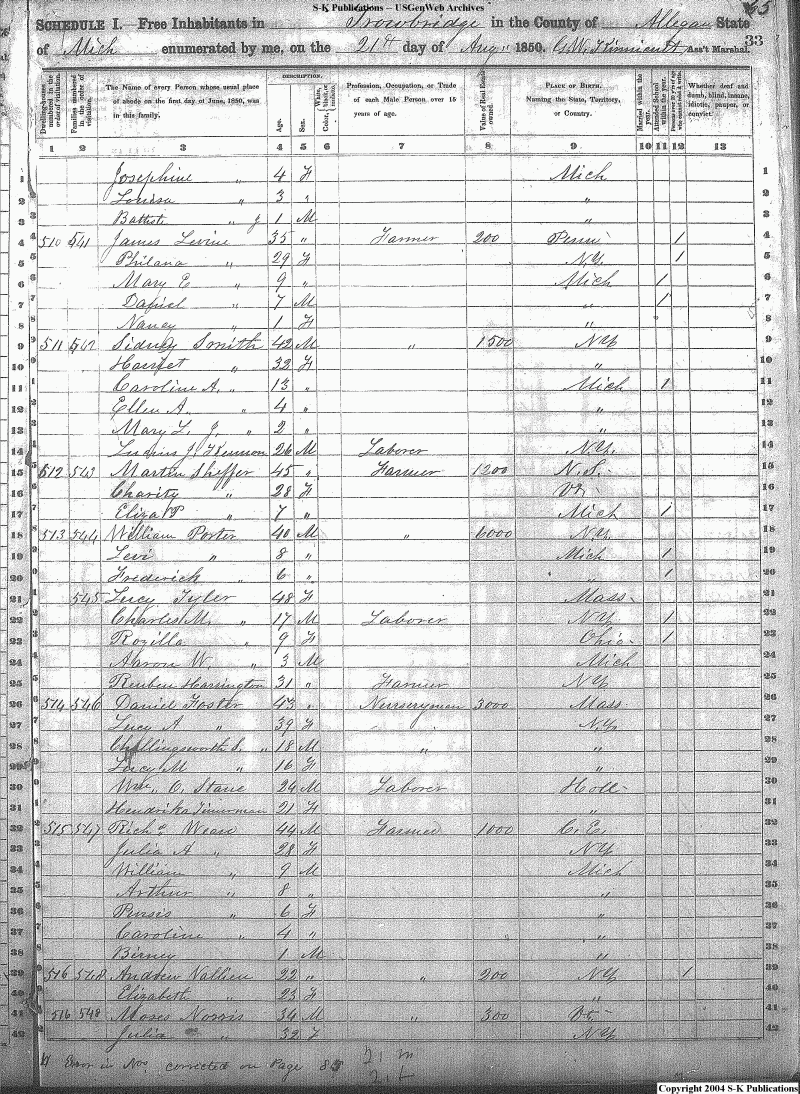 S-K Publications – USGenWeb Archives
65
SCHEDULE I. Free Inhabitants in Trowbridge in the County of Allegan State
33
of Mich enumerated by me, on the 21st day of Aug 1850. Ass't Marshal.
Dwelling-houses numbered in the order of visitation.
Families numbered in the order of visitation.
The Name of every Person whose usual place of abode on the first day of June, 1850, was in this family.
DESCRIPTION.
Age.
Sex.
White, Color, black, or mulatto.
Profession, Occupation, or Trade of each Male Person, over 15 years of age.
Value of Real Estate owned.
PLACE OF BIRTH. Naming the State, Territory, or Country.
Married within the year.
Attended School within the year.
Persons over 20 y'rs of age who cannot read & write.
Whether deaf and dumb, blind, insane, idiotic, pauper, or convict.
1 2 3 4 5 6 7 8 9 10 11 12 13
1 Josephine " 4 F Mich 1
2 Louisa " 3 " " 2
3 Battiste " J 1 M " 3
4 510 541 James Levine 35 " Farmer 200 Penn 1 4
5 Philana " 29 F N.Y. 1 5
6 Mary E " 9 " Mich 1 6
7 Daniel " 7 M " 1 7
8 Nancy " 1 F " 8
9 511 542 Sidney Smith 42 M " 1500 N.Y. 9
10 Harriet " 32 F " 10
11 Caroline A. " 13 " Mich 1 11
12 Ellen A. " 4 " " 12
13 Mary L. J. " 2 " " 13
14 J. 26 M Laborer N.Y. 14
15 512 543 Martin Sheffer 45 " Farmer 1200 N.J. 15
16 Charity " 28 F Vt. 16
17 Eliza P " 7 " Mich 1 17
18 513 544 William Porter 40 M " 6000 N.Y. 18
19 Levi " 8 " Mich 1 19
20 Frederick " 6 " " 1 20
21 545 Lucy Tyler 48 F Mass 21
22 Charles M. " 17 M Laborer N.Y. 1 22
23 Rozilla " 9 F Ohio 1 23
24 Aaron W. " 3 M Mich 24
25 Reuben Harrington 31 " Farmer N.Y. 25
26 514 546 Daniel Foster 43 " Nurseryman 3000 Mass 26
27 Lucy A " 39 F N.Y. 27
28 Chillingsworth S. " 18 M " " 28
29 Lucy M " 16 F " 29
30 Wm. C. Stane 24 M Laborer Holl 30
31 Hendrika Timerman 21 F " 31
32 515 547 Richd Weare 44 M Farmer 1000 C.E. 32
33 Julia A " 28 F N.Y. 33
34 William " 9 M Mich 34
35 Arthur " 8 " " 35
36 Persis " 6 F " 36
37 Caroline " 4 " " 37
38 Birney 1 M " 38
39 516 548 Andrew Nallien 22 " " 200 N.Y. 1 39
40 Elizabeth " 23 F " 40
41 516 548 Moses Norris 34 M " 300 Vt. 41
42 Julia " 32 F N.Y. 42
Error in Nos corrected on Page 85
21 m
21 f
Copyright 2004 S-K Publications